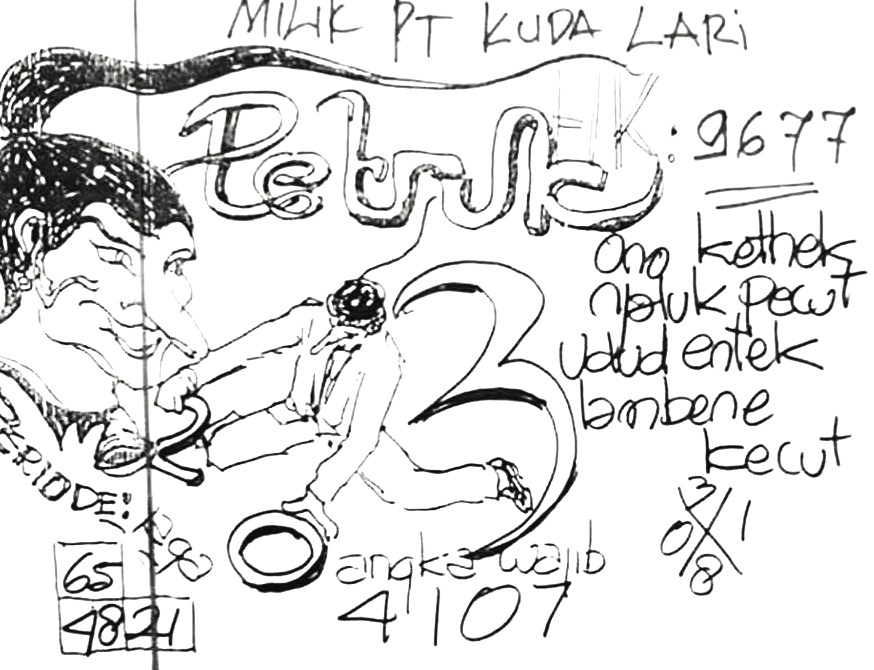 MILIK PT KUDA LARi
Petruk : 9677
Ono kethek
njaluk pecut
udud entek
lambene
kecut
PERIODE:
3
0 X 1
8
65
4821
angka wajib
4107